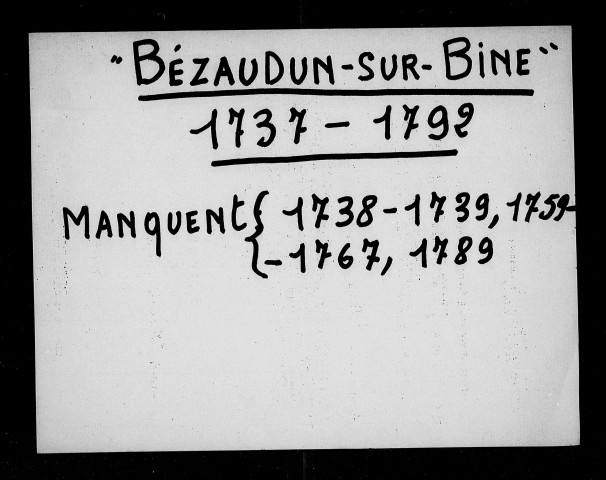 "BÉZAUDUN-SUR-BINE"
1737 - 1792
MANQUENT { 1738-1739, 1759-
-1767, 1789